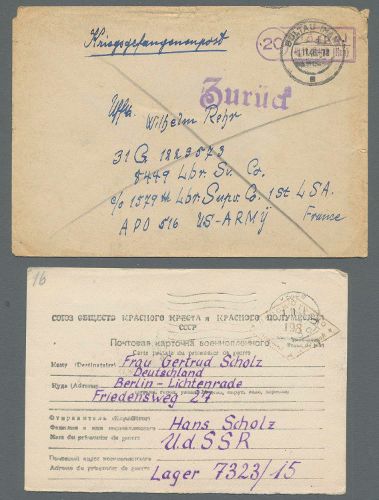 Kriegsgefangenenpost
20
Zurück
Uffz. Wilhelm Rehr
31 G 1229573
8449 Lbr. Sv. Co.
c/o 1579th Lbr. Supv. Co. 1st LSA.
APO 516 US-ARMY
France
16
СОЮЗ ОБЩЕСТВ КРАСНОГО КРЕСТА и КРАСНОГО ПОЛУМЕСЯЦА
СССР
Почтовая карточка военнопленного
Carte postale du prisonnier de guerre
Кому (Destinataire) Frau Gertrud Scholz
Deutschland
Куда (Adresse) Berlin-Lichtenrade
Friedensweg 27
Отправитель (Expéditeur)
Фамилия и имя военнопленного Hans Scholz
Nom du prisonnier de guerre
U.d.SSR
Почтовый адрес военнопленного
Adresse du prisonnier de guerre Lager 7323/15